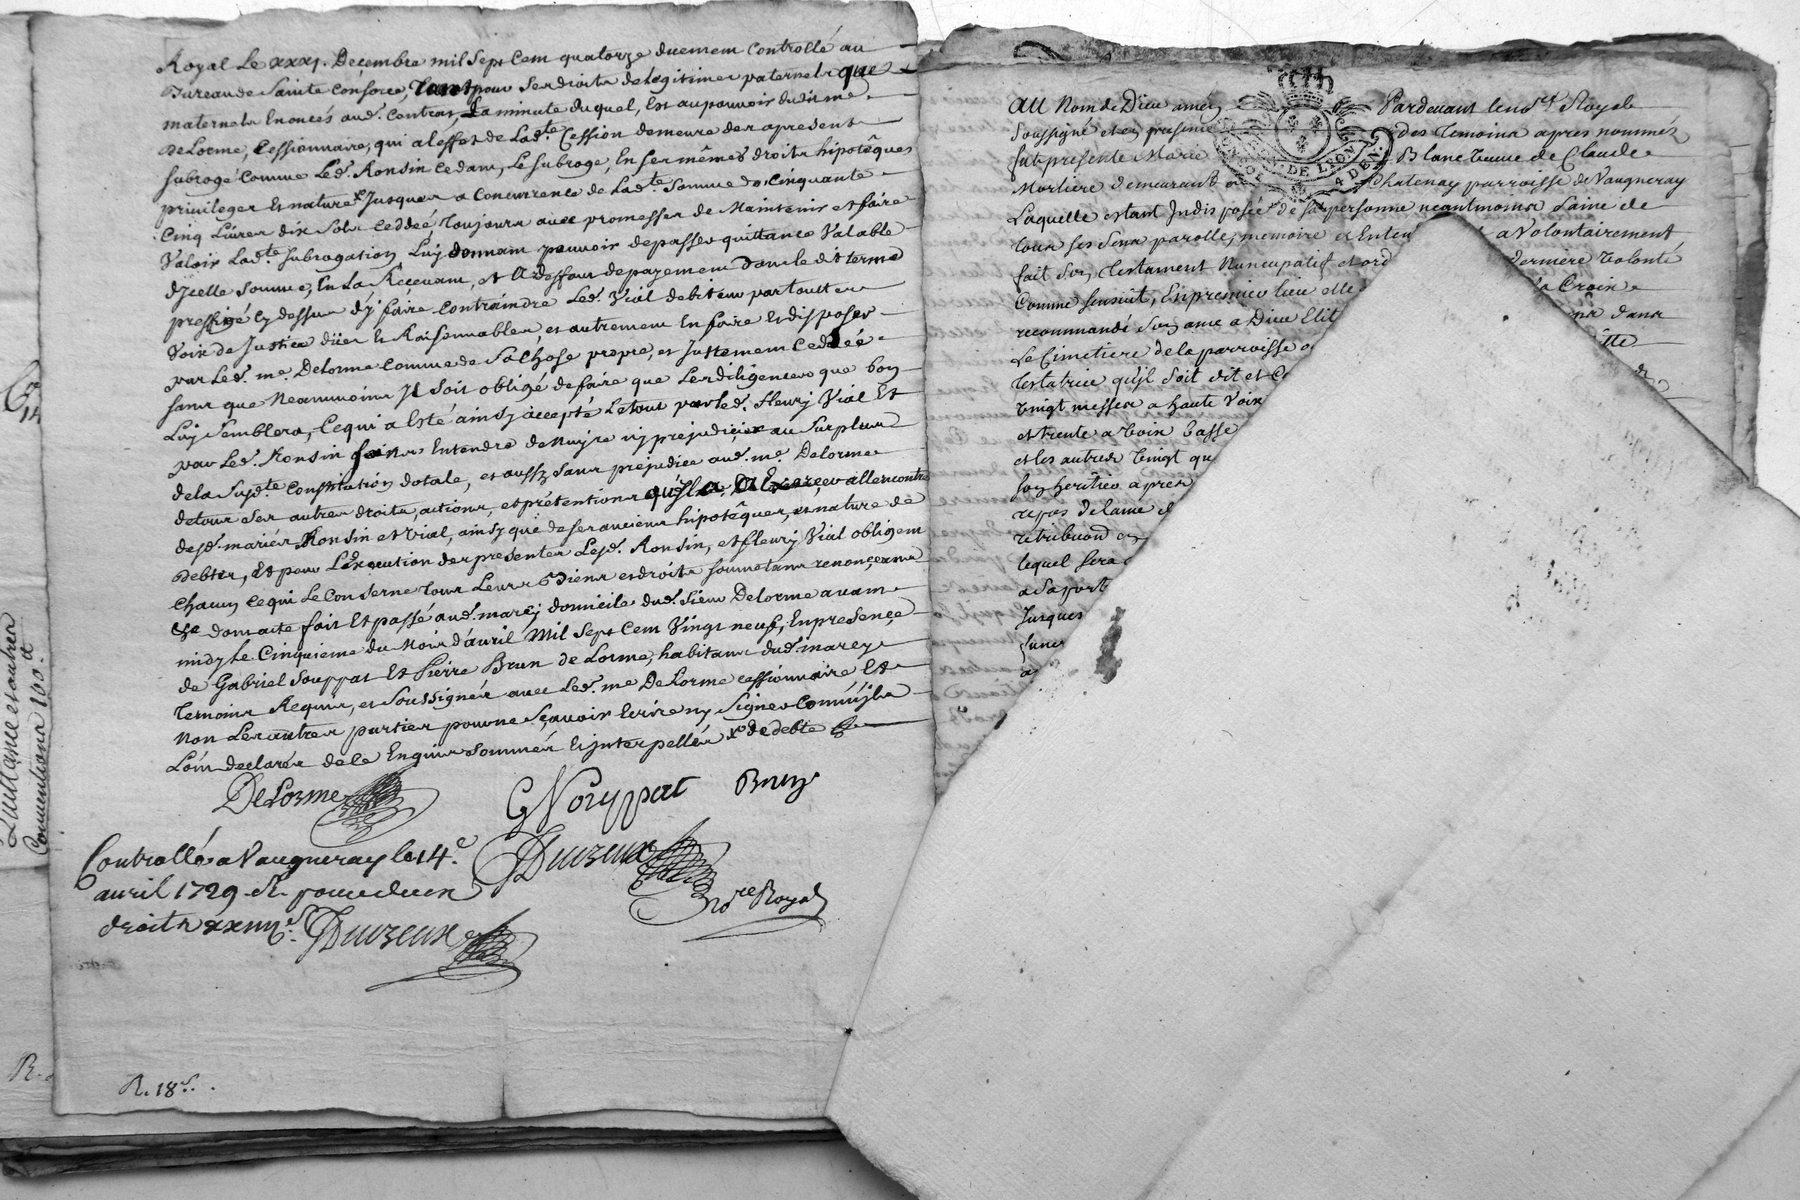 Royal Le xxxj. Decembre mil Sept Cem quatorze duemem Controllé au
Bureau de Sainte Consorce, Tant pour Ses droits de Legitimes paternels que
maternels Enoncés aud. Contrat, La minute duquel, Est au pouvoir dudit me.
DeLorme, Cessionnaire, qui a leffet de Ladte Cession demeure des apresent
subrogé Comme Led. Ronsin Cedam, Le subroge, En ses mêmes droits hipotêques
privileges Et nature Jusques a Concurrence de Ladte Somme de Cinquante
Cinq Livres dix Sols Ceddée Toujours avec promesses de Maintenir et faire
Valoir Ladte subrogation, Luy donnam pouvoir de passer quittance Valable
dJcelle somme, En La Recevam, et A deffaux de payement dans le dit terme
presfigé cy dessus d'y faire Contraindre Led. Vial debiteur par touttes
Voix de Justice düer Et Raisonnables, et autrement En faire Et disposer
par Led. me. DeLorme Comme de Sa Chose propre, et Justement Ceddée
sans que Neammoins Jl soit obligé de faire que Les diligences que bon
Luy Semblera, Ce qui a Esté ainsy accepté Le tout par led. fleury Vial Et
par Led. Ronsin sans Entendre de Nuyre ny prejudicier au Surplus
de la Susdte Constitution dotale, et aussy sans prejudice aud. me. DeLorme
de tous ses autres droits, actions, et prétentions qu'il a A Exercer allencontre
desd. mariés Ronsin et Vial, ainsy que de ses anciens hipotêques, et nature de
Debtes, Et pour L'Execution des presentes Lesd. Ronsin, et fleury Vial obligem
Chacun Ce qui Le Conserne Tous Leurs Biens et droits soumetans renonçeans
&a dont acte fait Et passé aud. marcy domicile dud. sieur DeLorme avam
midy Le Cinquieme du Mois d'avril Mil Sept Cem Vingt neuf, En presence
de Gabriel Souppat Et Pierre Brun de Lorme, habitans dud. marcy
Temoins Requis, et Soussignés avec Led. me DeLorme cessionnaire Et
Non Les autres parties pour ne Sçavoir Ecrire ny Signer Comm'jls
L'oin declarés de ce Enquis sommés Et jnterpellés de debte &
DeLorme
G Souppat
Brun
Controllé a Vaugneray le 14e.
avril 1729. R. pour deux
droits xxiiijs.
Duvzeux
nore Royal
Duvzeux
R. 18s.
Quittance et autres
Conventions 100tt
R.
au Nom de Dieu amen
Pardevant le nore Royal
soussigné et en presence
des temoins apres nommés
fut presente Marie
Blanc veuve de Claude
GN. DE LYON
4 DEN.
Mortiere demeurant a
Chatenay parroisse de Vaugneray
Laquelle estant Jndisposée de sa personne neantmoins saine de
tous ses sens parolle, memoire et Enten
a Volontairement
fait son Testament Nuncupatif et ord
derniere volonté
Comme sensuit, En premier lieu elle
la Croix
recommandé son ame a Dieu Elit
dans
Le Cimetiere de la parroisse
Testatrice qu'jl soit dit et
vingt messes a haute voix
et trente a voix basse
et les autres vingt qu
son heritier apres
repos de lame
retribuon
lequel sera
Jusques